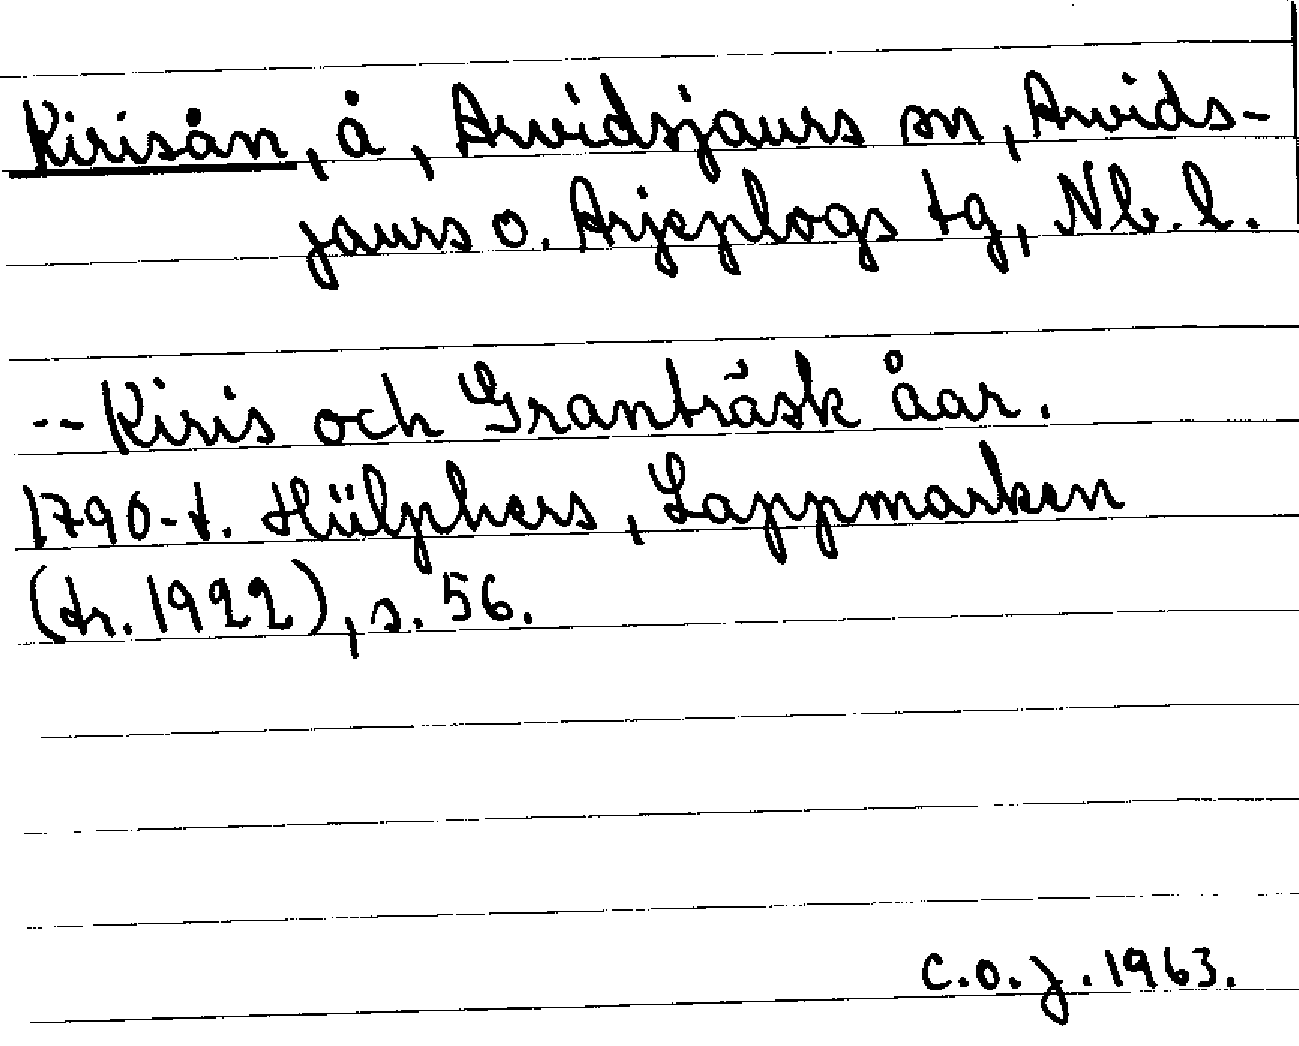 Kirisån, å, Arvidsjaurs sn, Arvids-
jaurs o. Arjeplogs tg, Nb. l.
-- Kiris och Granträsk åar.
1790-t. Hülphers, Lappmarken
(tr. 1922), s. 56.
C.O.J. 1963.